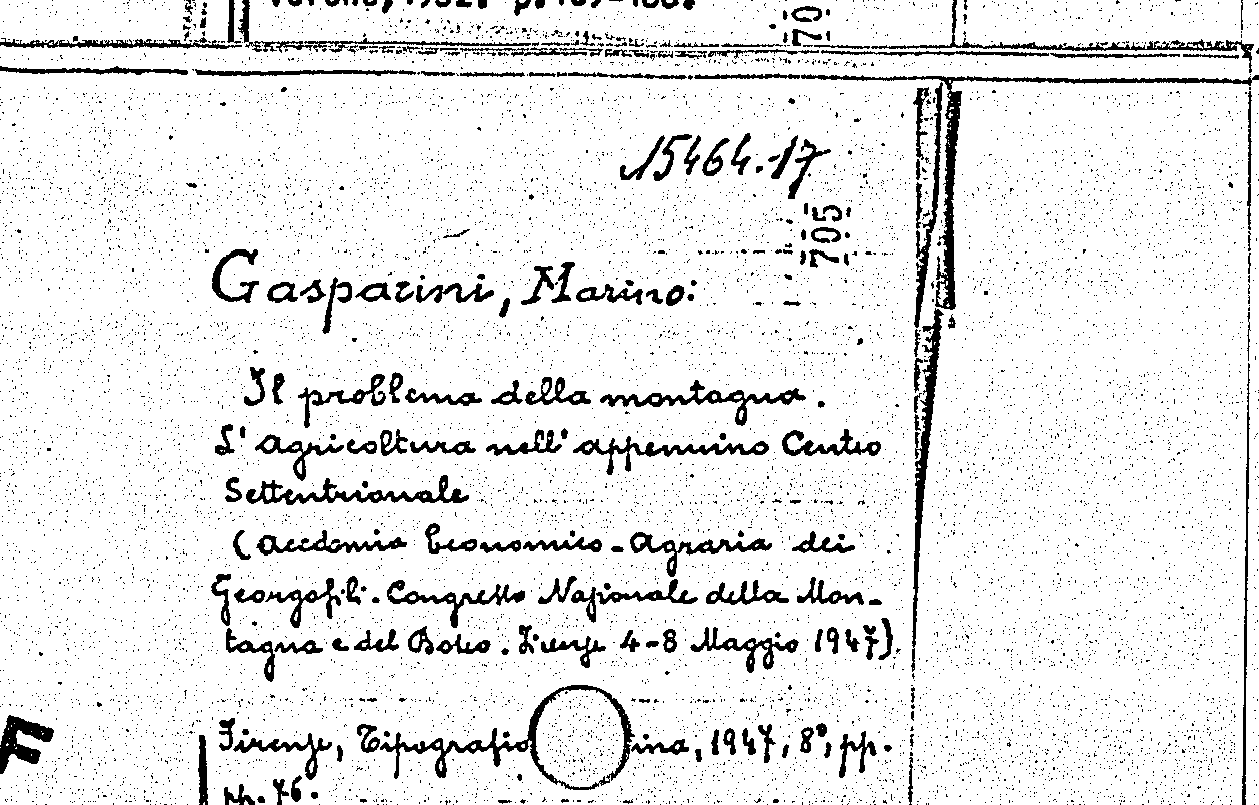 Verona, 1932. p.
70
15464.17
705
Gasparini, Marino:
Il problema della montagna.
L'agricoltura nell'appennino Centro
Settentrionale
(Accdemia Economico-Agraria dei
Georgofili. Congresso Nazionale della Mon-
tagna e del Bosco. Firenze 4-8 Maggio 1947)
F
Firenze, Tipografic ina, 1947, 8°, pp.
pp. 76.